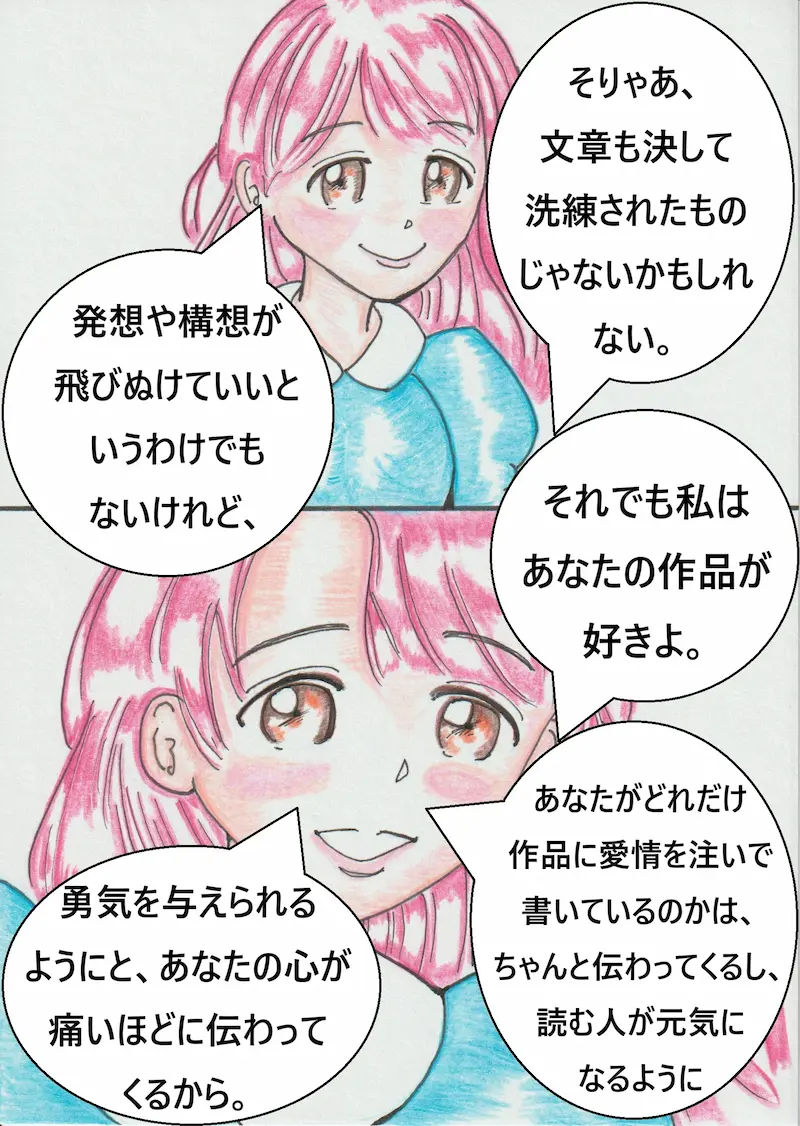 そりゃあ、
文章も決して
洗練されたもの
じゃないかもしれ
ない。
発想や構想が
飛びぬけていいと
いうわけでも
ないけれど、
それでも私は
あなたの作品が
好きよ。
あなたがどれだけ
作品に愛情を注いで
書いているのかは、
ちゃんと伝わってくるし、
読む人が元気に
なるように
勇気を与えられる
ようにと、あなたの心が
痛いほどに伝わって
くるから。